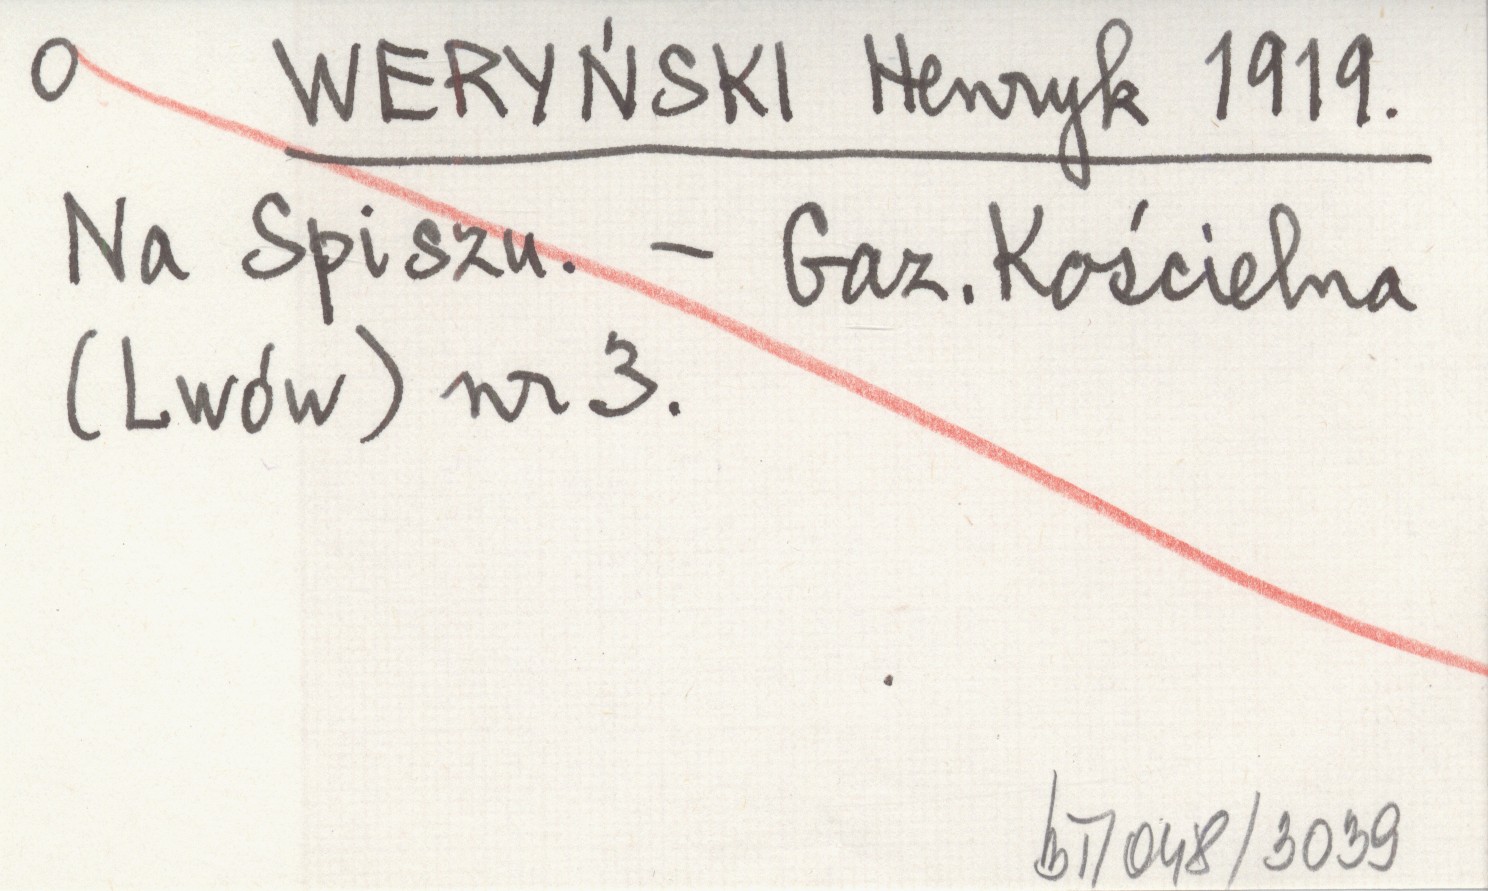 O WERYŃSKI Henryk 1919.
Na Spiszu. – Gaz. Kościelna
(Lwów) nr 3.
bT/048/3039